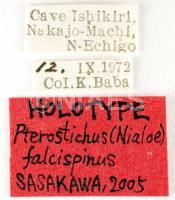 Cave Ishikiri,
Nakajo-Machi,
N-Echigo
12. IX.1972
Col.K.Baba
HOLOTYPE
Pterostichus (Nialoe)
falcispinus
SASAKAWA, 2005